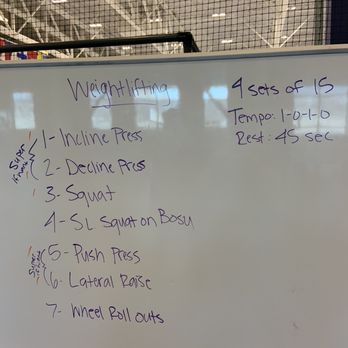 Weightlifting
4 sets of 15
Tempo: 1-0-1-0
Rest: 45 sec
1- Incline Press
2- Decline Press
3- Squat
4- SL Squat on Bosu
5- Push Press
6- Lateral Raise
7- Wheel Roll outs
Super
Super